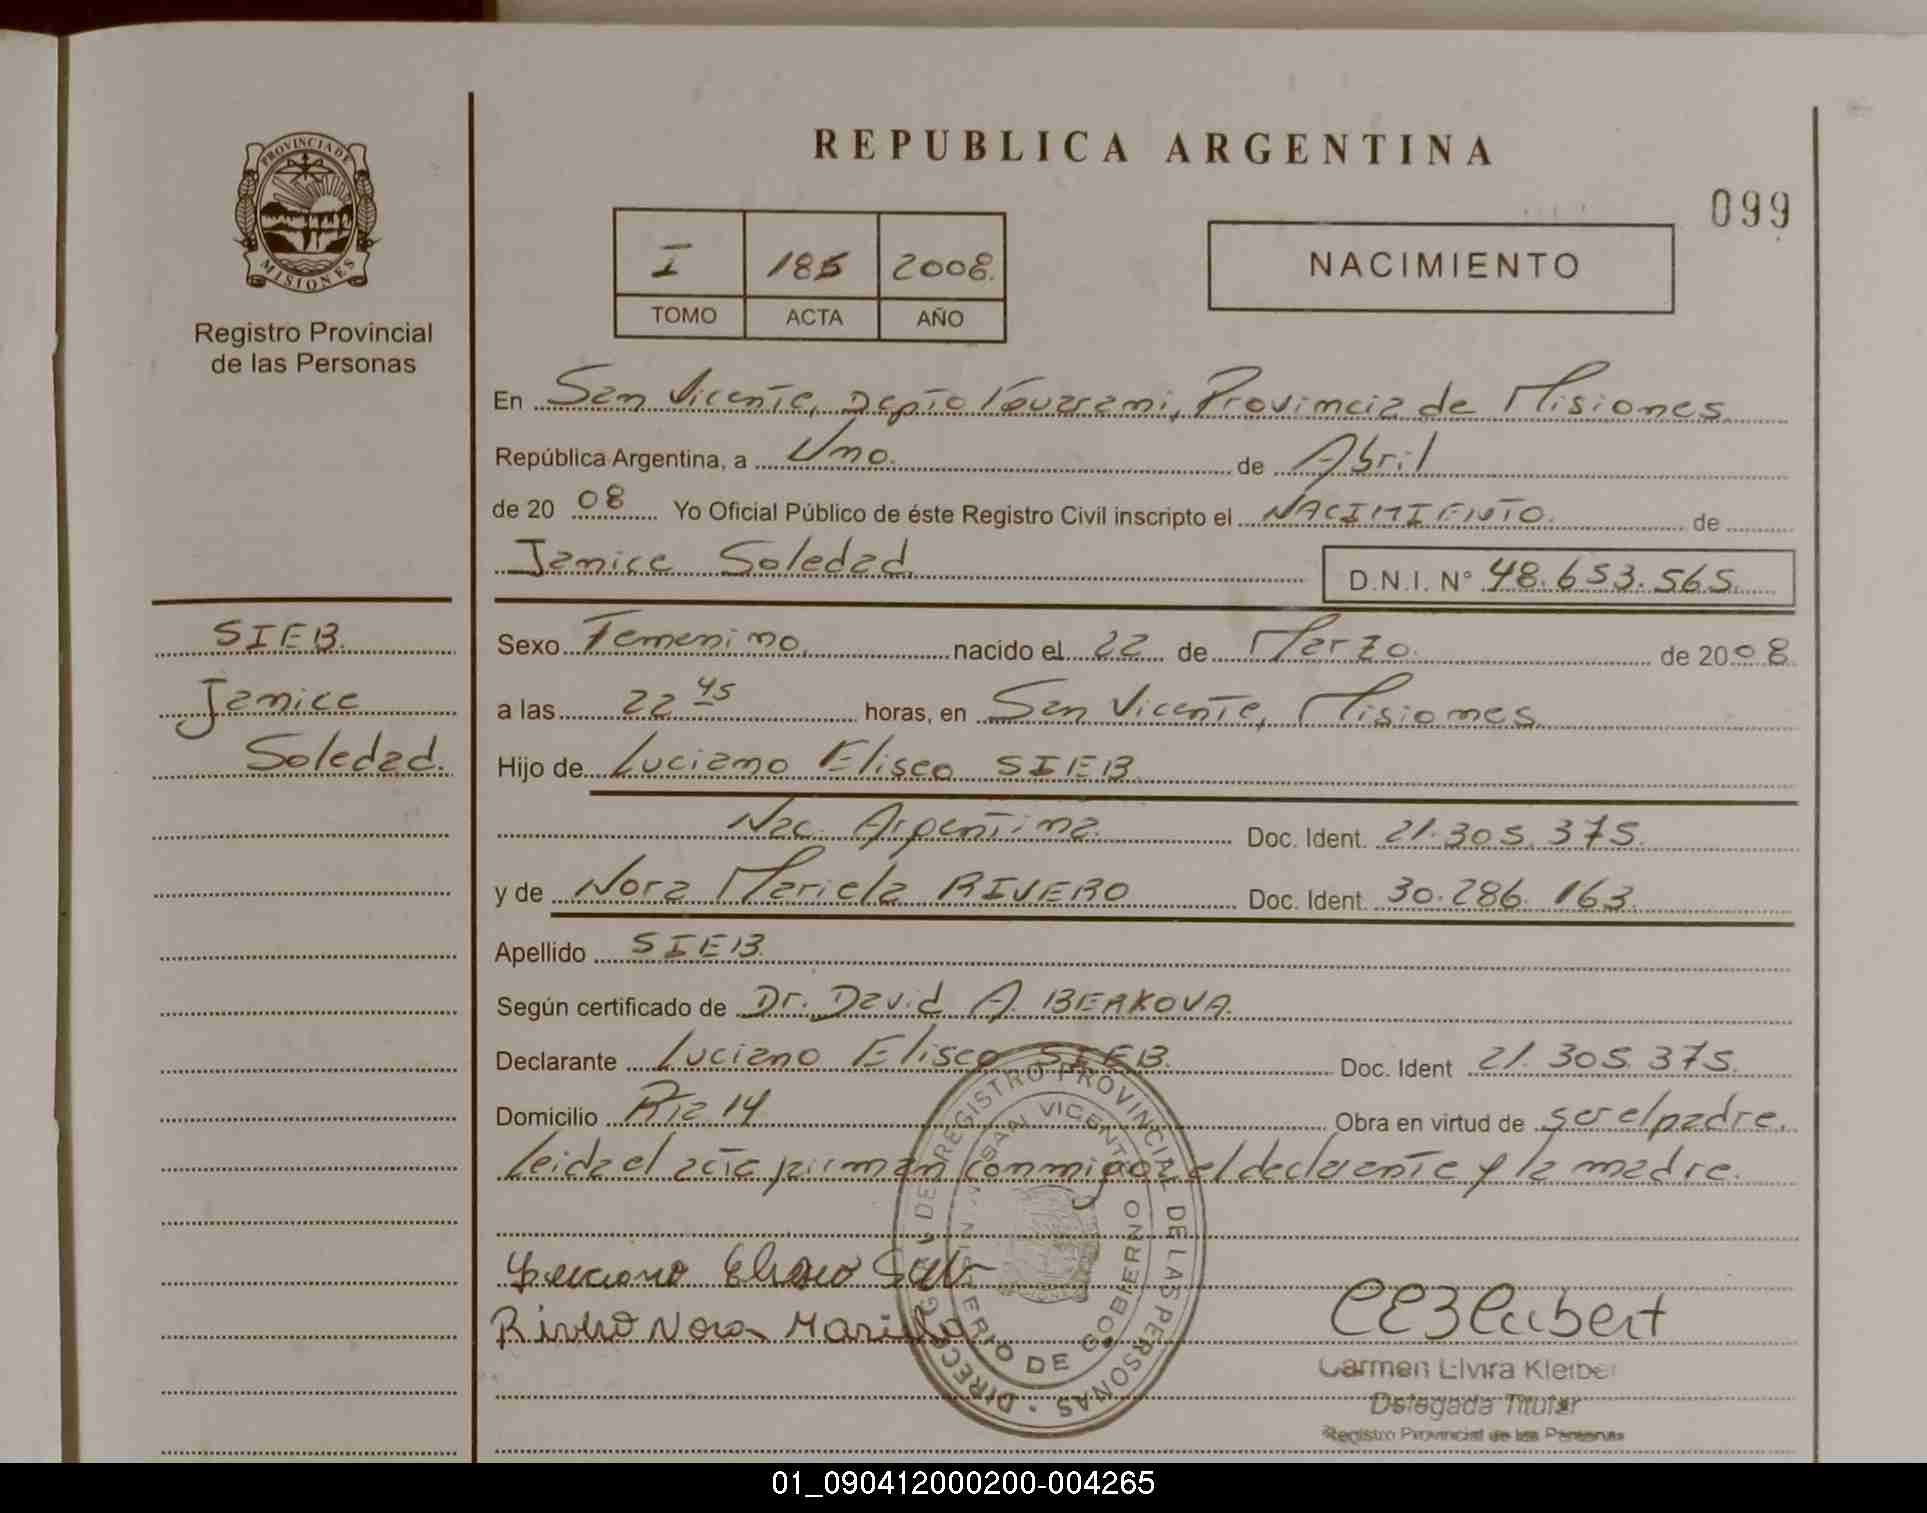 PROVINCIA DE
MISIONES
Registro Provincial
de las Personas
SIEB.
Janice
Soledad.
REPUBLICA ARGENTINA
099
I 185 2008.
TOMO ACTA AÑO
NACIMIENTO
En San Vicente, Depto Guarani, Provincia de Misiones
República Argentina, a Uno. de Abril
de 2008 Yo Oficial Público de éste Registro Civil inscripto el NACIMIENTO. de
Janice Soledad D.N.I. N° 48.653.565.
Sexo Femenino. nacido el 22 de Marzo. de 2008.
a las 22 45 horas, en San Vicente, Misiones
Hijo de Luciano Eliseo SIEB.
Nac. Argentina. Doc. Ident. 21.305.375.
y de Nora Mariela RIVERO Doc. Ident. 30.286.163.
Apellido SIEB.
Según certificado de Dr. David A.
Declarante Luciano Eliseo SIEB. Doc. Ident 21.305.375.
Domicilio Rta 14 Obra en virtud de ser el padre.
Leida el acta firman conmigo el declarante y la madre.
Luciano Eliseo Sieb
Rivero Nora Mariela
DIRECC. G. DE REGISTRO PROVINCIAL DE LAS PERSONAS
SAN VICENTE
DE GOBIERNO
Carmen Elvira Kleiber
Delegada Titular
Registro Provincial de las Personas
01_090412000200-004265